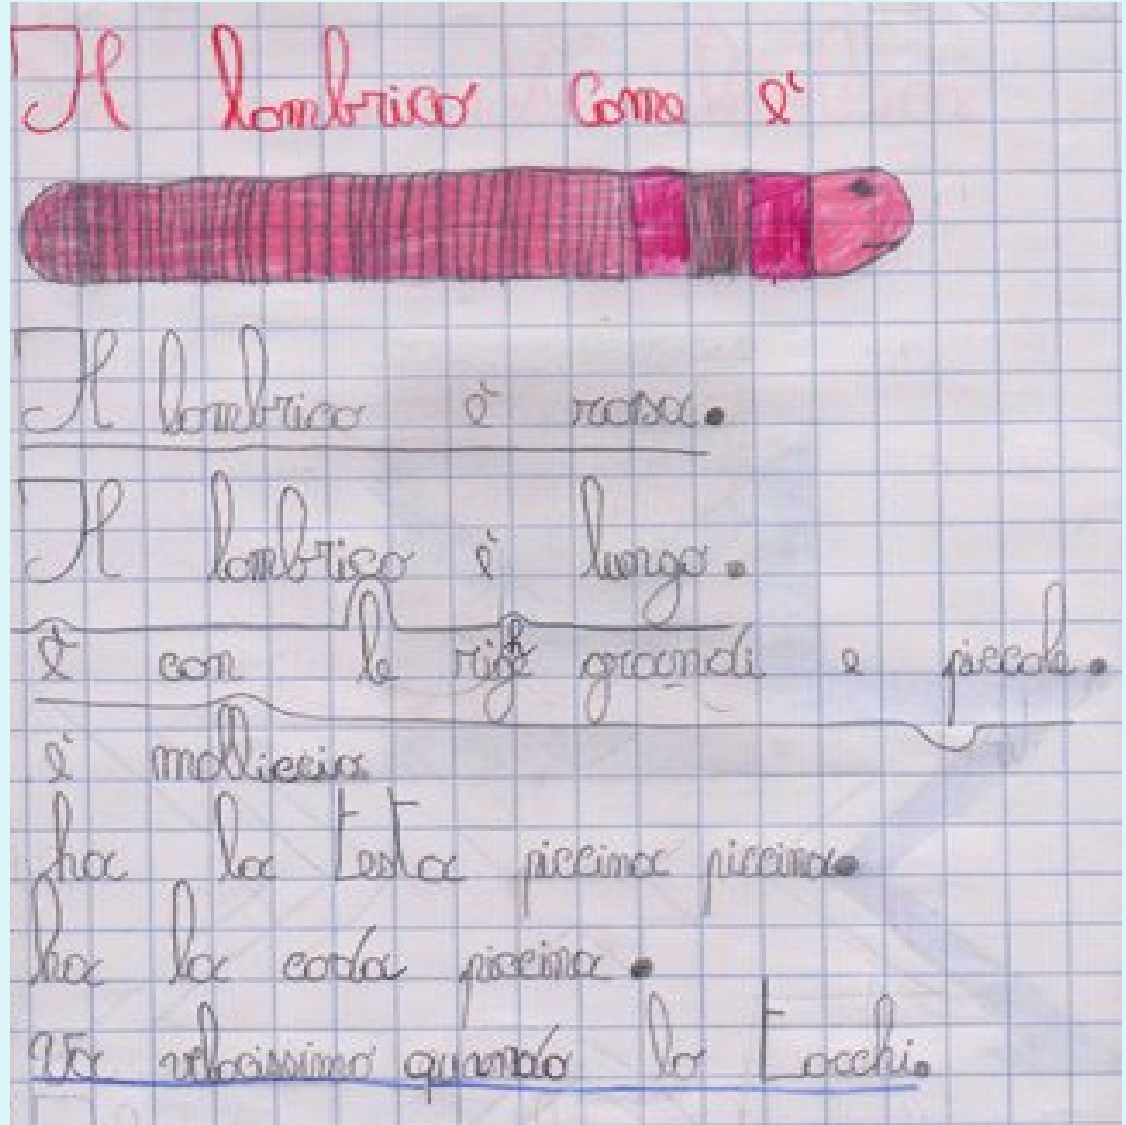 Il lombrico Come è
Il lombrico è rosa.
Il lombrico è lungo.
è con le righe grandi e piccole.
è molliccia
ha la testa piccina piccina.
ha la coda piccina.
va velocissimo quando lo tocchi.